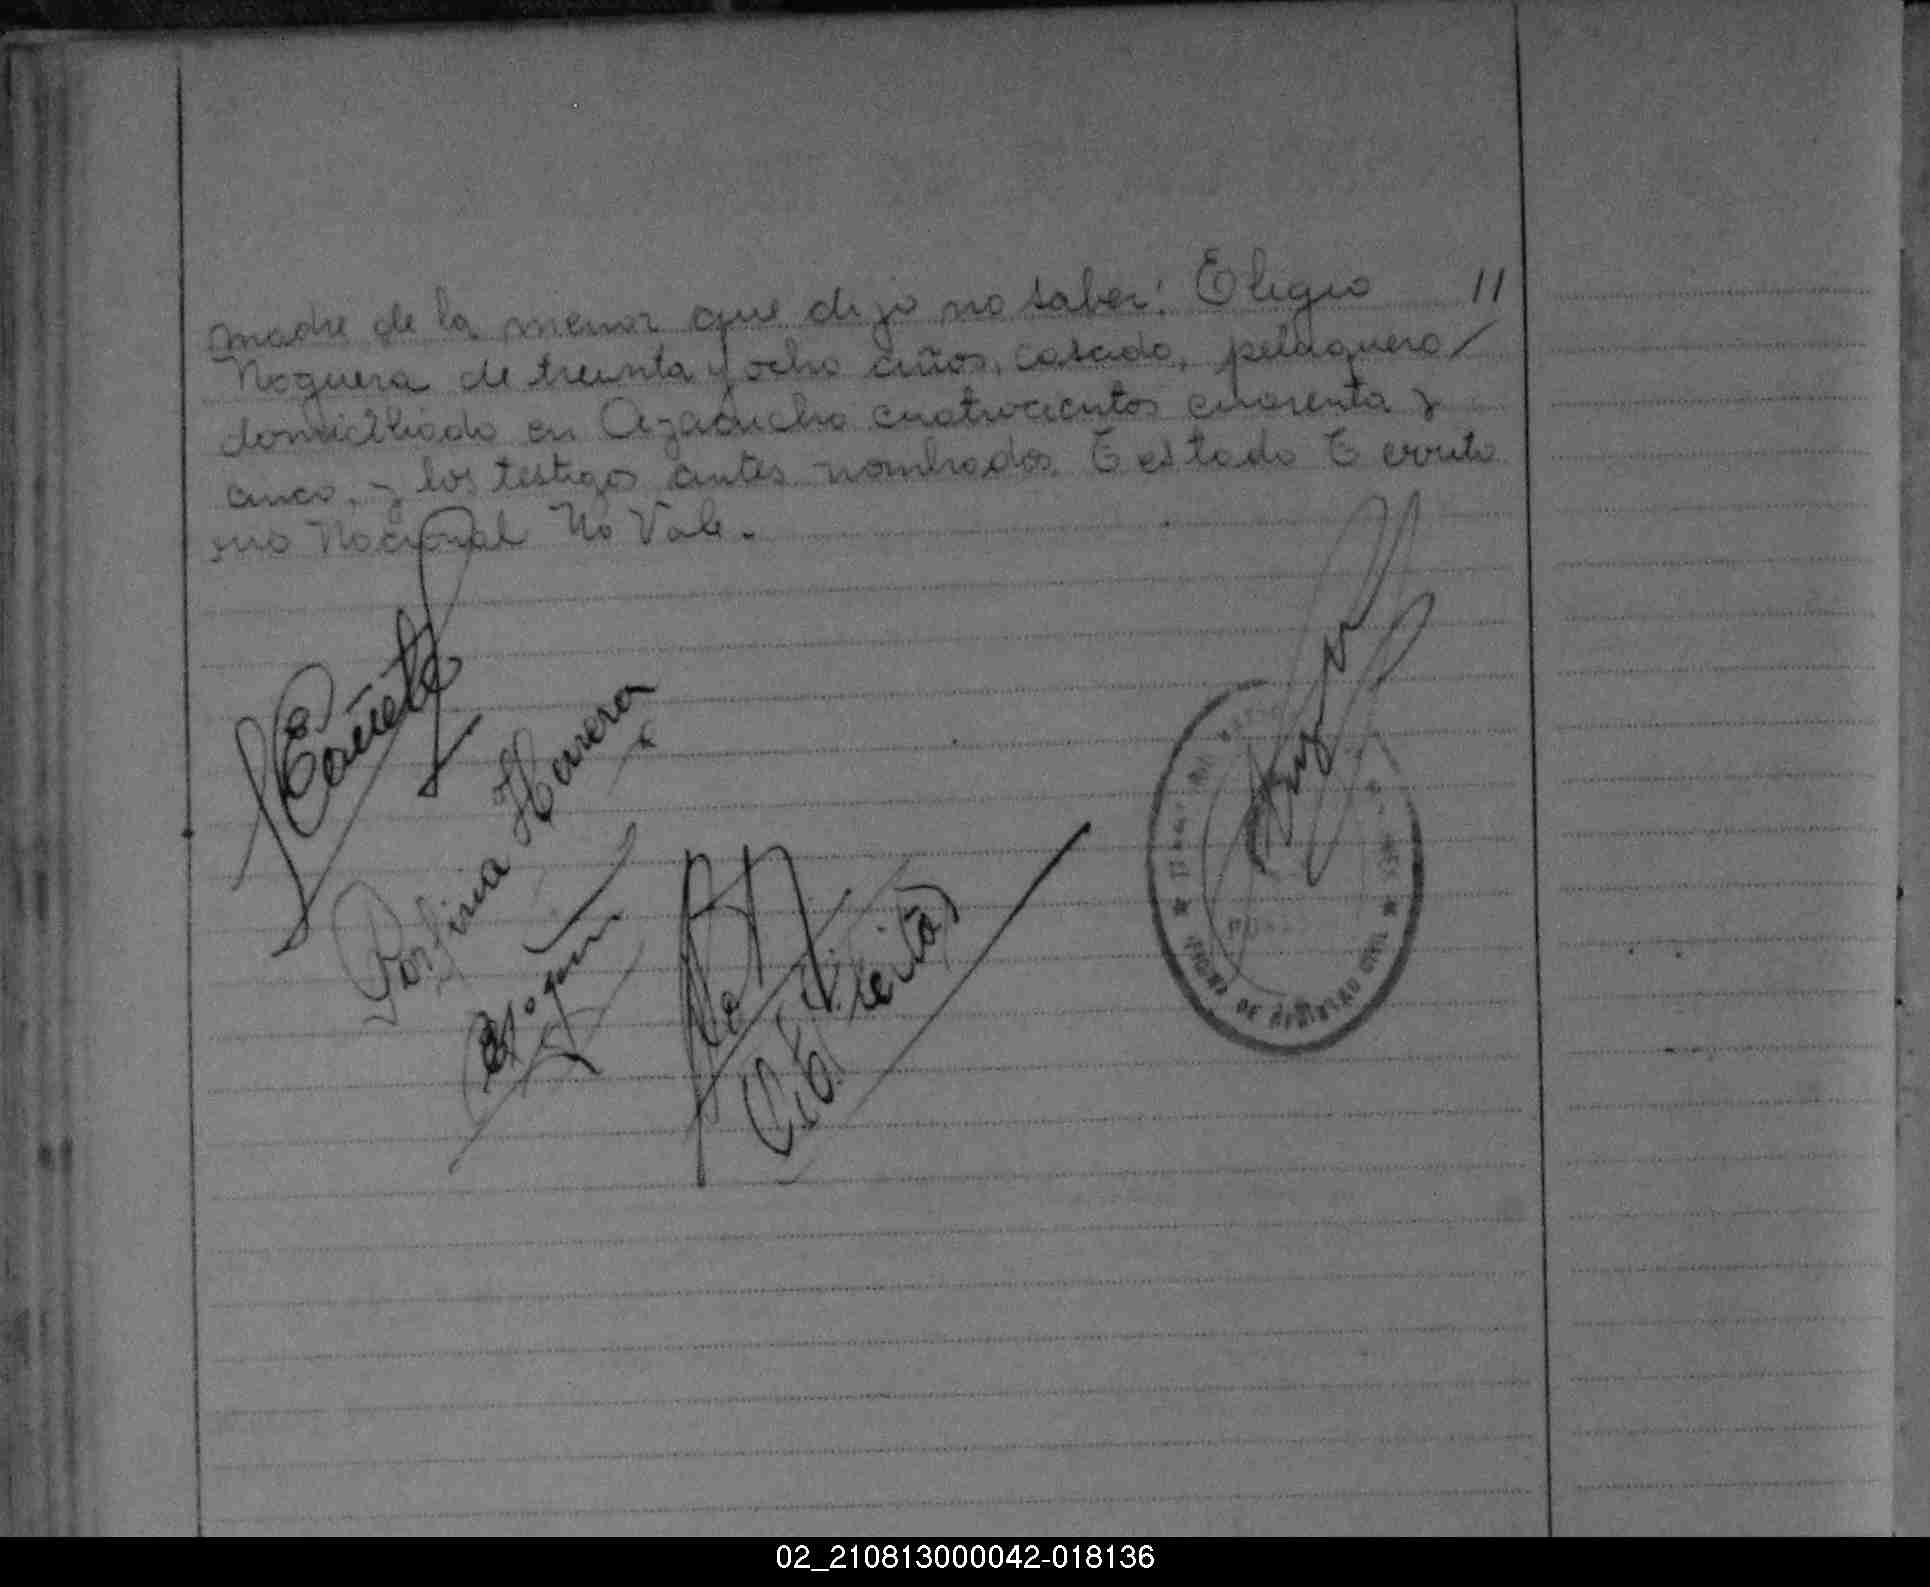 madre de la menor que dijo no saber: Eligio 11
Noguera de treinta y ocho años, casado, peluquero/
domicilliado en Ayacucho cuatrocientos cuarenta y
cinco, y los testigos antes nombrados. Testado Territo
rio Nacional No Vale.
Cañete
Porfiria Herrera
E Noguera
Freitas
OFICINA DE REGISTRO CIVIL
02_210813000042-018136